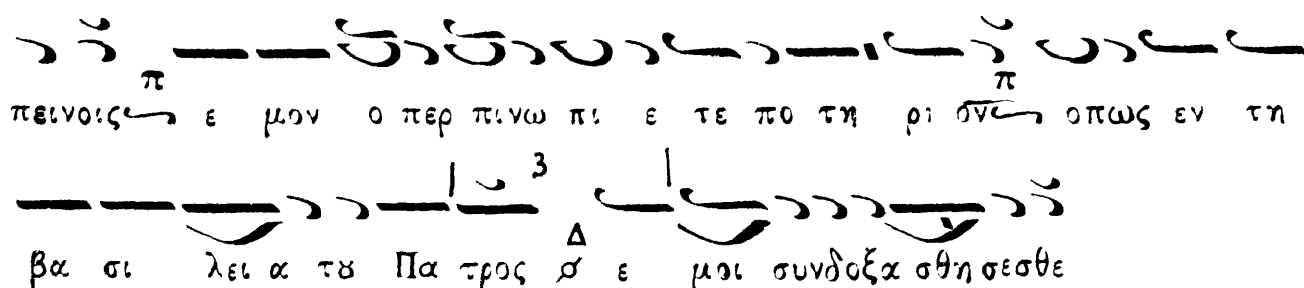 πεινοις ε μον ο περ πινω πι ε τε πο τη ρι ον οπως εν τη
βα σι λει α τȣ Πα τρος ε μοι συνδοξα σθη σεσθε